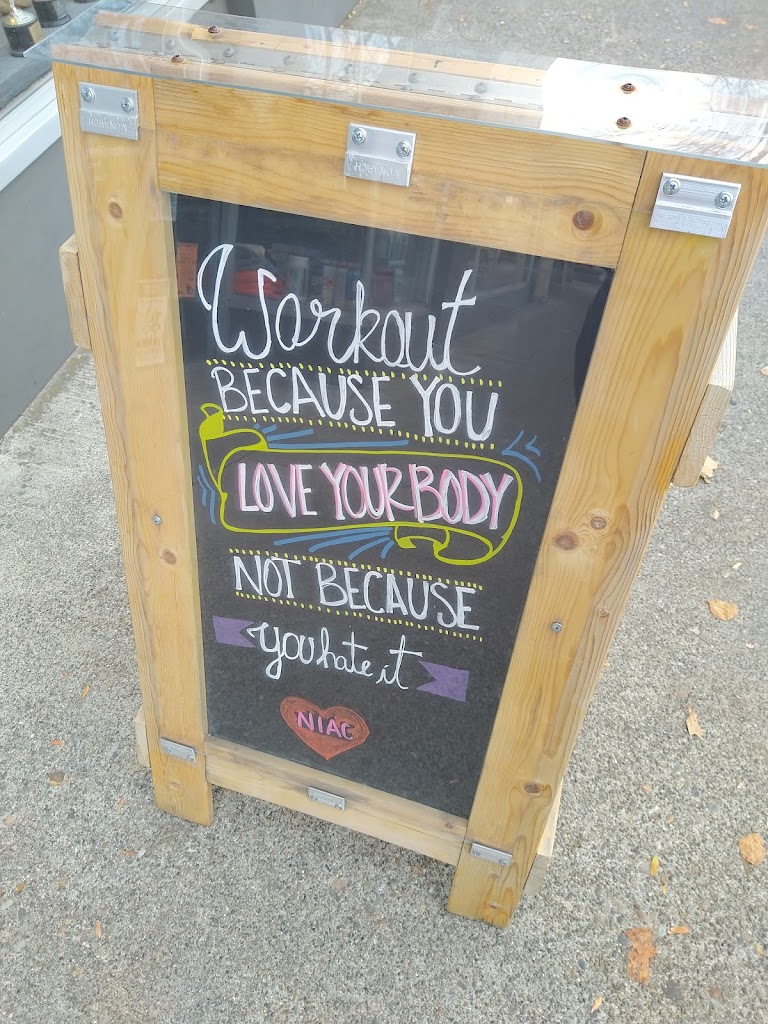 MONARCH
MONARCH
Workout
BECAUSE YOU
LOVE YOUR BODY
NOT BECAUSE
you hate it
NIAC